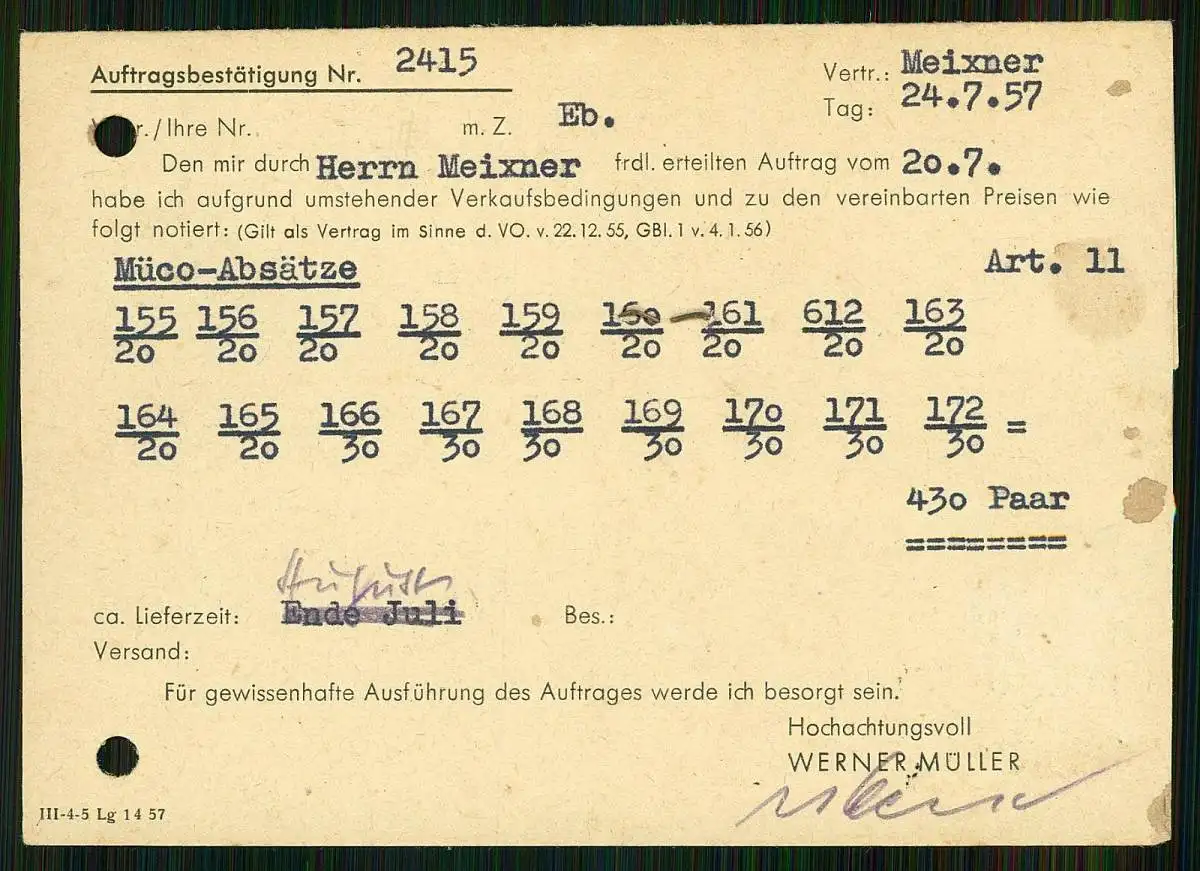 Auftragsbestätigung Nr. 2415
Vertr.: Meixner
Tag: 24.7.57
r./Ihre Nr. m. Z. Eb.
Den mir durch Herrn Meixner frdl. erteilten Auftrag vom 20.7.
habe ich aufgrund umstehender Verkaufsbedingungen und zu den vereinbarten Preisen wie
folgt notiert: (Gilt als Vertrag im Sinne d. VO. v. 22.12.55, GBl. 1 v. 4.1.56)
Müco-Absätze Art. 11
155 156 157 158 159 160 - 161 612 163
20 20 20 20 20 20 20 20 20
164 165 166 167 168 169 170 171 172 =
20 20 30 30 30 30 30 30 30
430 Paar
========
August
ca. Lieferzeit: Ende Juli Bes.:
Versand:
Für gewissenhafte Ausführung des Auftrages werde ich besorgt sein.
Hochachtungsvoll
WERNER MÜLLER
III-4-5 Lg 14 57